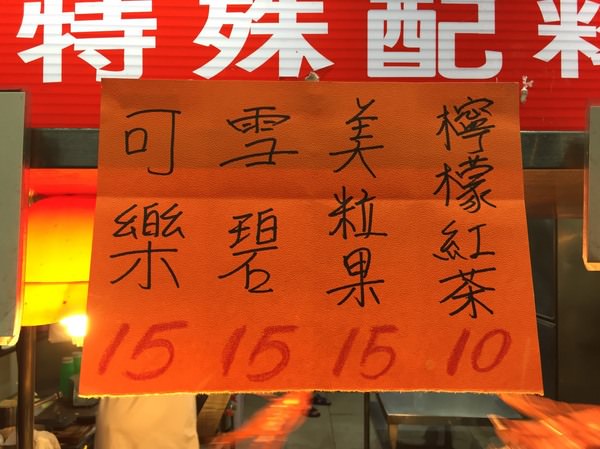 特殊配料
檸檬紅茶
10
美粒果
15
雪碧
15
可樂
15